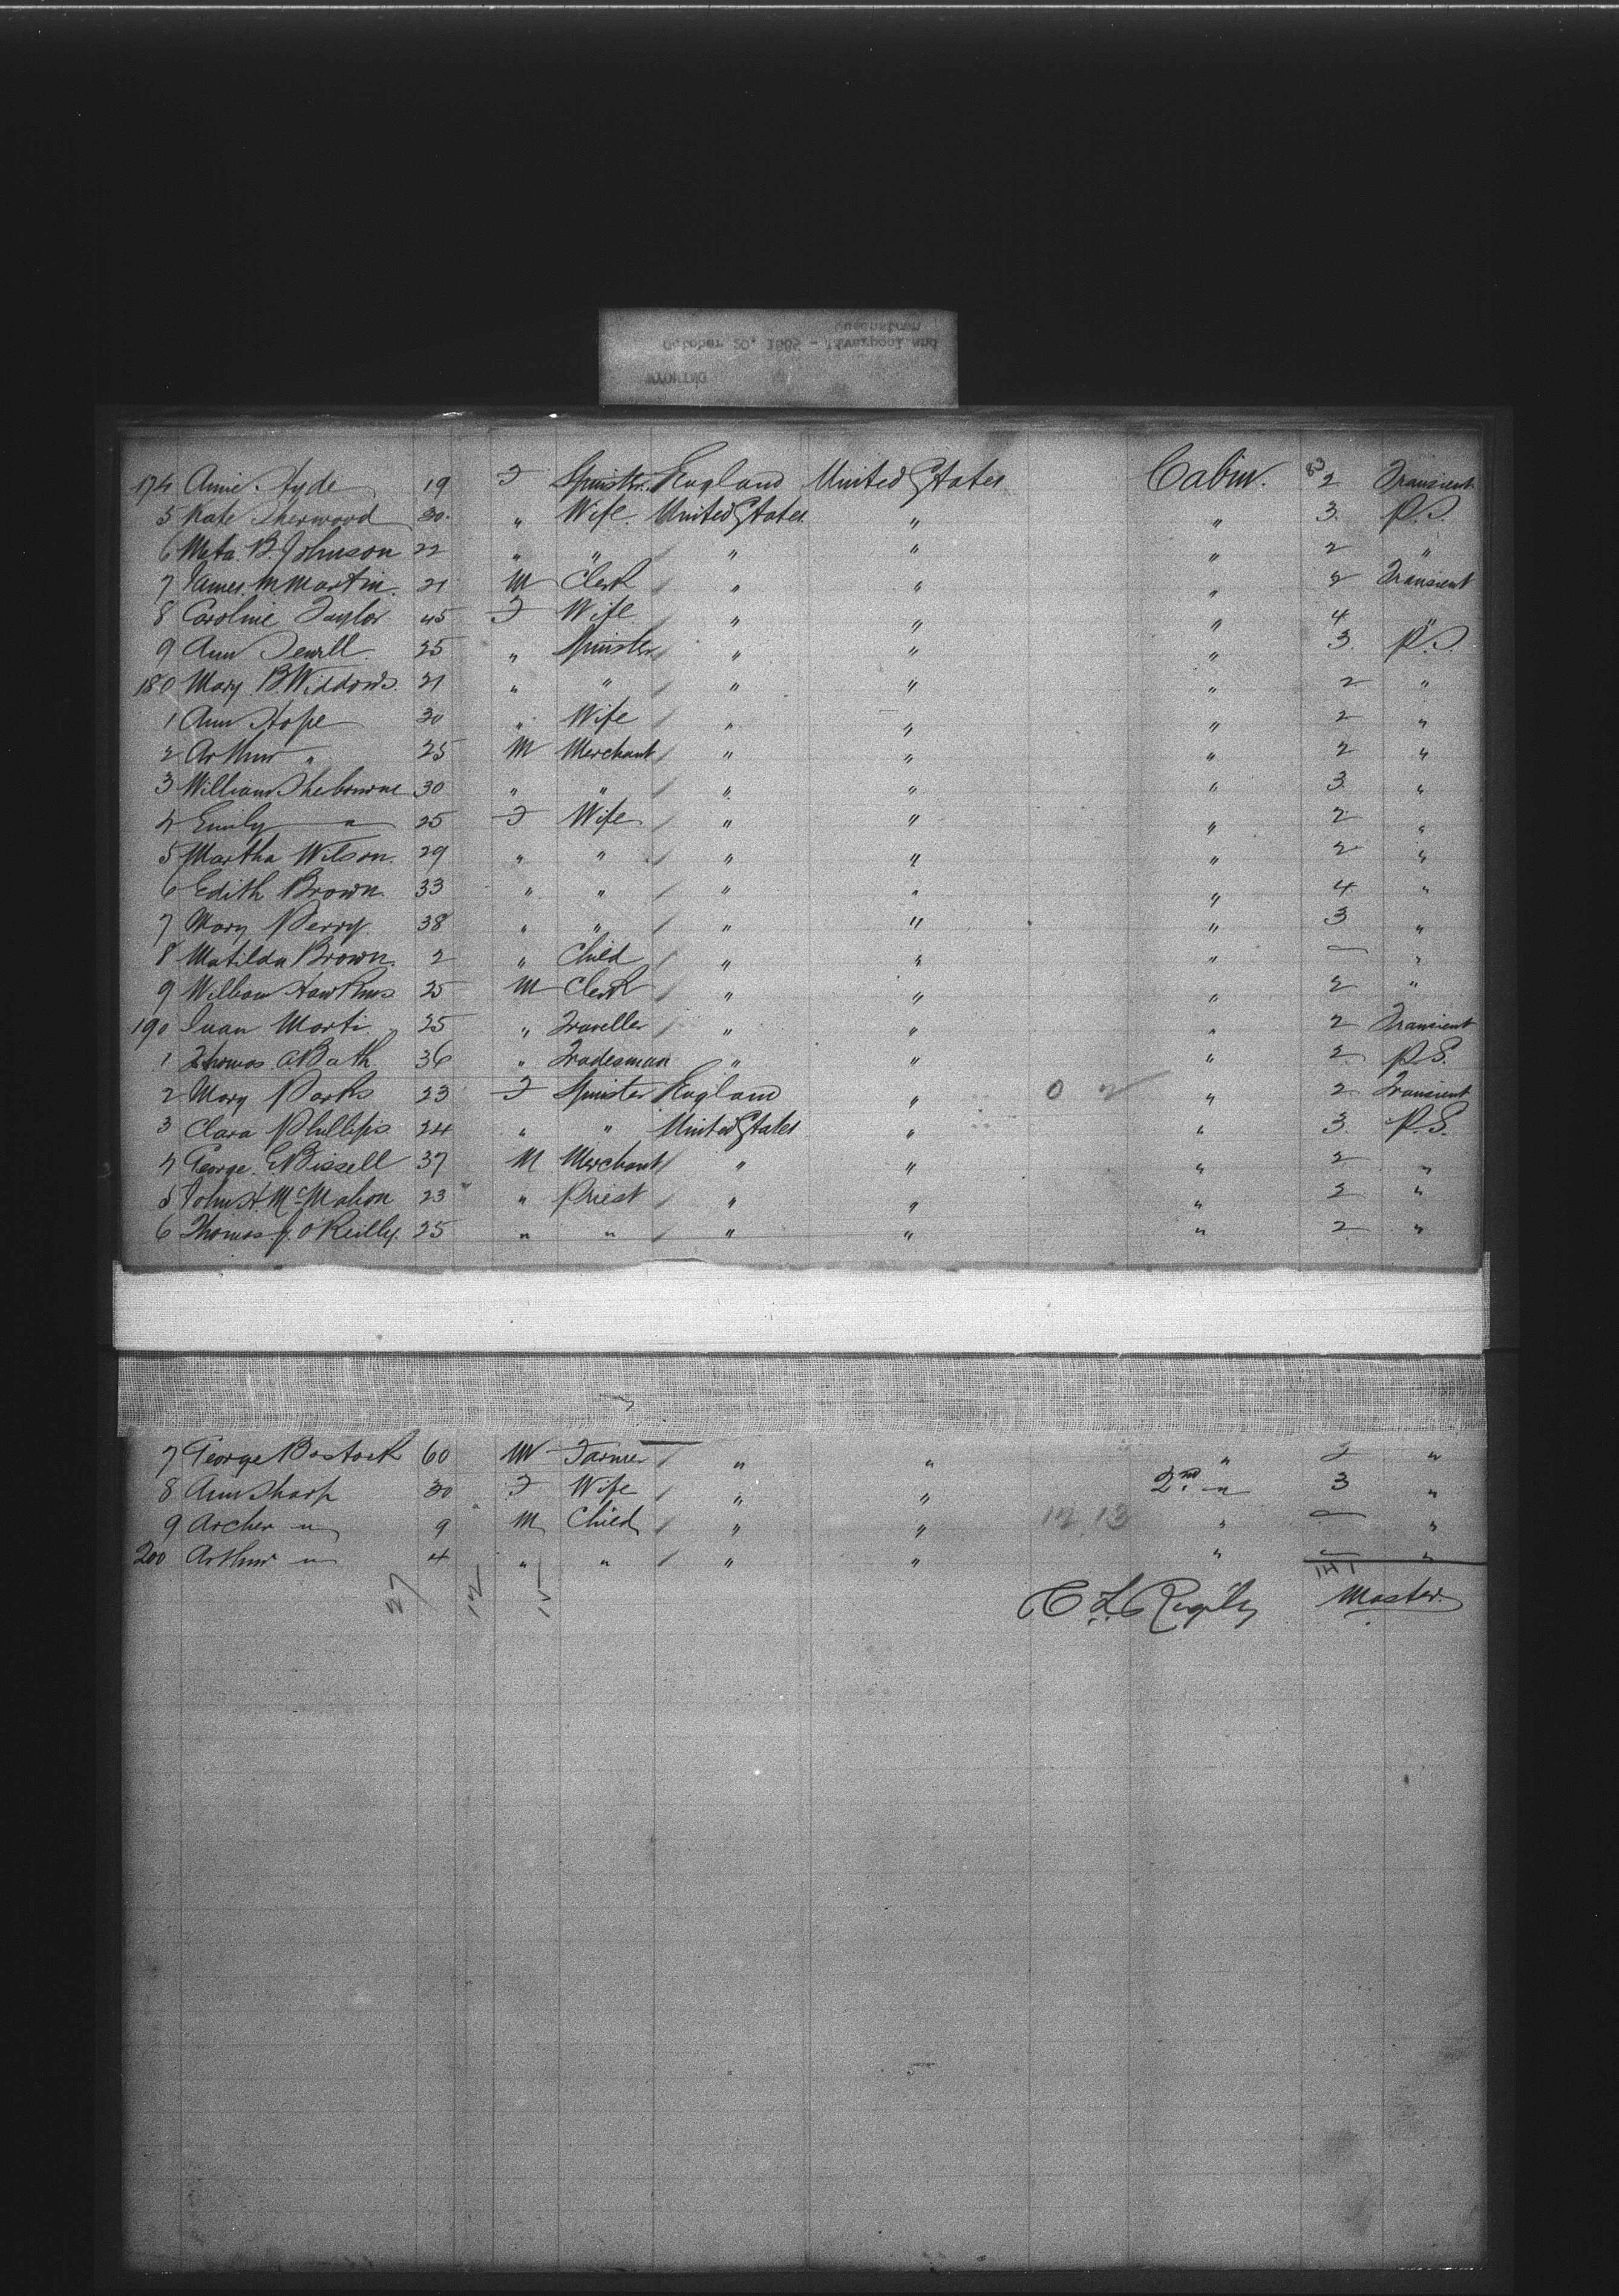 WYOMING
October 20, 1885 - Liverpool and
Queenstown
174 Annie Hyde 19 F Spinster England United States Cabin. 2 Transient
5 Kate Sherwood 30 " Wife United States " " 3. P.S.
6 Meta B. Johnson 22 " " / " " " 2 "
7 James M. Martin. 21 M Clerk / " " " 2 Transient
8 Caroline Taylor 45 F Wife / " " " 4 "
9 Ann Sewell 25 " Spinster / " " " 3. P.S.
180 Mary B Widdows. 21 " " / " " " 2 "
1 Ann Hope 30 " Wife / " " " 2 "
2 Arthur " 25 M Merchant / " " " 2 "
3 William Shebourne 30 " " / " " " 3 "
4 Emily " 25 F Wife / " " " 2 "
5 Martha Wilson. 29 " " / " " " 2 "
6 Edith Brown 33 " " / " " " 4 "
7 Mary Perry 38 " " / " " " 3 "
8 Matilda Brown. 2 " Child / " " " — "
9 William Hawkins 25 M Clerk / " " " 2 "
190 Juan Marti 25 " Traveller / " " " 2 Transient
1 Thomas A Bath. 36 " Tradesman " " " 2 P.S.
2 Mary Parks 23 F Spinster England " 0 2 " 2 Transient
3 Clara Phillips 24 " " United States " " 3. P.S.
4 George E Bissell 37 M Merchant / " " " 2 "
5 John H McMahon 23 " Priest / " " " 2 "
6 Thomas J. O'Reilly. 25 " " / " " " 2 "
7 George Bostock 60 M Farmer / " " " 2 "
8 Ann Sharp 30 F Wife / " " 2nd " 3 "
9 Archer " 9 M Child / " " 12 13 " — "
200 Arthur " 4 " " / " " " — "
27 12 15 141
C. L. Rigby Master.